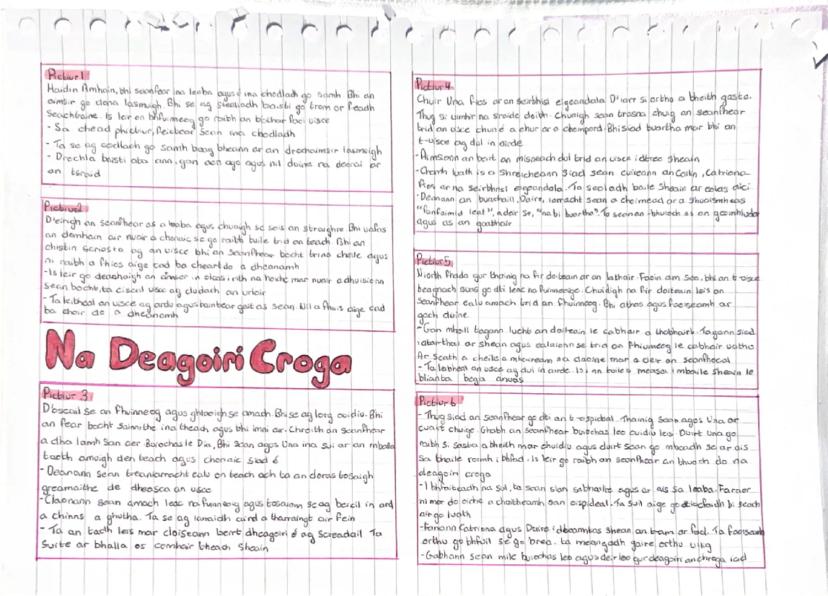 Pictiur 1
Maidin Amhain, bhi seanfear ina leaba agus é ina chodladh go samh. Bhi an
aimsir go dona lasmuigh. Bhi se ag stealladh baisti go trom ar feadh
Seachtaine. Is leir on bhfuinneog go raibh an bothar faoi uisce
- Sa chead phictiur, feictear Sean ina chodladh
- Ta se ag codladh go samh beag bheann ar an drochaimsir lasmuigh
- Oiche baisti ata ann, gan aon ago agus nil duine na deorai ar
an tsraid
Pictiur 2
D'eirigh an seanfhear as a leaba agus chuaigh se seis an staighre. Bhi uafas
an domhain air nuair a chonaic se go raibh tuile trid an teach. Bhi an
chistin scriosta ag an uisce bhi an seanfhear bocht trina cheile agus
ni raibh a fhios aige cad ba cheart do a dheanamh
- Is leir go deachaigh an
sean bocht, ta ciseal uisce ag cludach an urlair
- Ta leibheal an uisce ag ardu agus baintear geit as sean. Nil a fhuis aige cad
ba choir do a dheanamh
Na Deagoiri Croga
Pictiur 3
D'oscail se an fhuinneog agus ghlaoigh se amach. Bhi se ag lorg cuidiu. Bhi
an fear bocht sainnithe ina theach agus bhi imni ar. Chroith an seanfhear
a dha lamh san aer. Buiochas le Dia, Bhi Sean agus Una ina sui ar an mballa
taobh amuigh den teach agus chonaic siad é
- Deanann Sean iarracht ealu on teach ach ta an doras tosaigh
greamaithe de dheasca an uisce
- Claonann sean amach leis na fuinneog agus tosaionn se ag beicil in ard
a chinns a ghutha. Ta se ag iarraidh aird a tharraingt air fein
- Ta an t-adh leis mar cloiseann beirt dheagoiri é ag screadail. Ta
suite ar bhalla os comhair theach Sheain
Pictiur 4
Chuir Una fios ar an seirbhis eigeandala. D'iarr si orthu a bheith gasta.
Thug si uimhir na sraide doibh. Chuaigh sean trasna chuig an seanfhear
trid an uisce chun é a chur ar a chompord. Bhi siad buartha mar bhi an
t-uisce ag dul in airde
- Aimsionn an beirt an misneach dul trid an uisce i dtreo Sheain
- Chomh luath is a Shroicheann siad sean cuireann an Cailin, Catriona
fios ar na seirbhisi eigeandala. Ta seoladh baile Shean ar eolas aici
- Deanann an buachaill, Daire, iarracht sean a cheimead ar a Shuaimhneas
"fanfaimid leat", adeir se, "na bi buartha". Ta seanan bhuioch as an gcomhluadar
agus as an gcabhair
Pictiur 5
Niorth fhada gur thainig na fir doiteain ar an lathair. Faoin am Sin, bhi an t-uisce
beagnach suas go dti leac na fuinneoige. Chuidigh na fir doiteain leis an
seanfhear ealu amach trid an fhuinneog. Bhi athas agus faoiseamh ar
gach duine
- Gan mhoill tagann lucht an doiteain le cabhair a thabhairt. Tagann siad
i dtarrthail ar shean agus ealaionn se trid an fhuinneog le cabhair uathu
Ar Scath a cheile a mhaireann na daoine mar a deir an seanfhocal
- Ta leibheal an uisce ag dul in airde. Is i an tuile is measa i mbaile Sheain le
blianta beaga anuas
Pictiur 6
- Thug siad an seanfhear go dti an t-ospideal. Thainig Sean agus Una ar
cuairt chuige. Ghabh an seanfhear buiochas leo cuidiu leis. Duirt Una go
raibh si sasta a bheith mar chuidiu agus duirt sean go mbeadh se ar ais
sa bhaile roimh i bhfad. Is leir go raibh an seanfhear an bhuioch do na
deagoiri croga
- I bhfaiteadh na sul, ta sean slan sabhailte agus ar ais sa leaba. Faraor
ni mor do oiche a chaitheamh san ospideal. Ta Suil aige go dtiocfaidh bi seach
air go luath
- Fanann Catriona agus Daire i dteannta Shean an tam ar fad. Ta faoiseamh
orthu go bhfuil se go breá. ta meangadh gaire orthu uilig
- Gabhann sean mile buiochas leo agus deir leo gur deagoiri an chroga iad